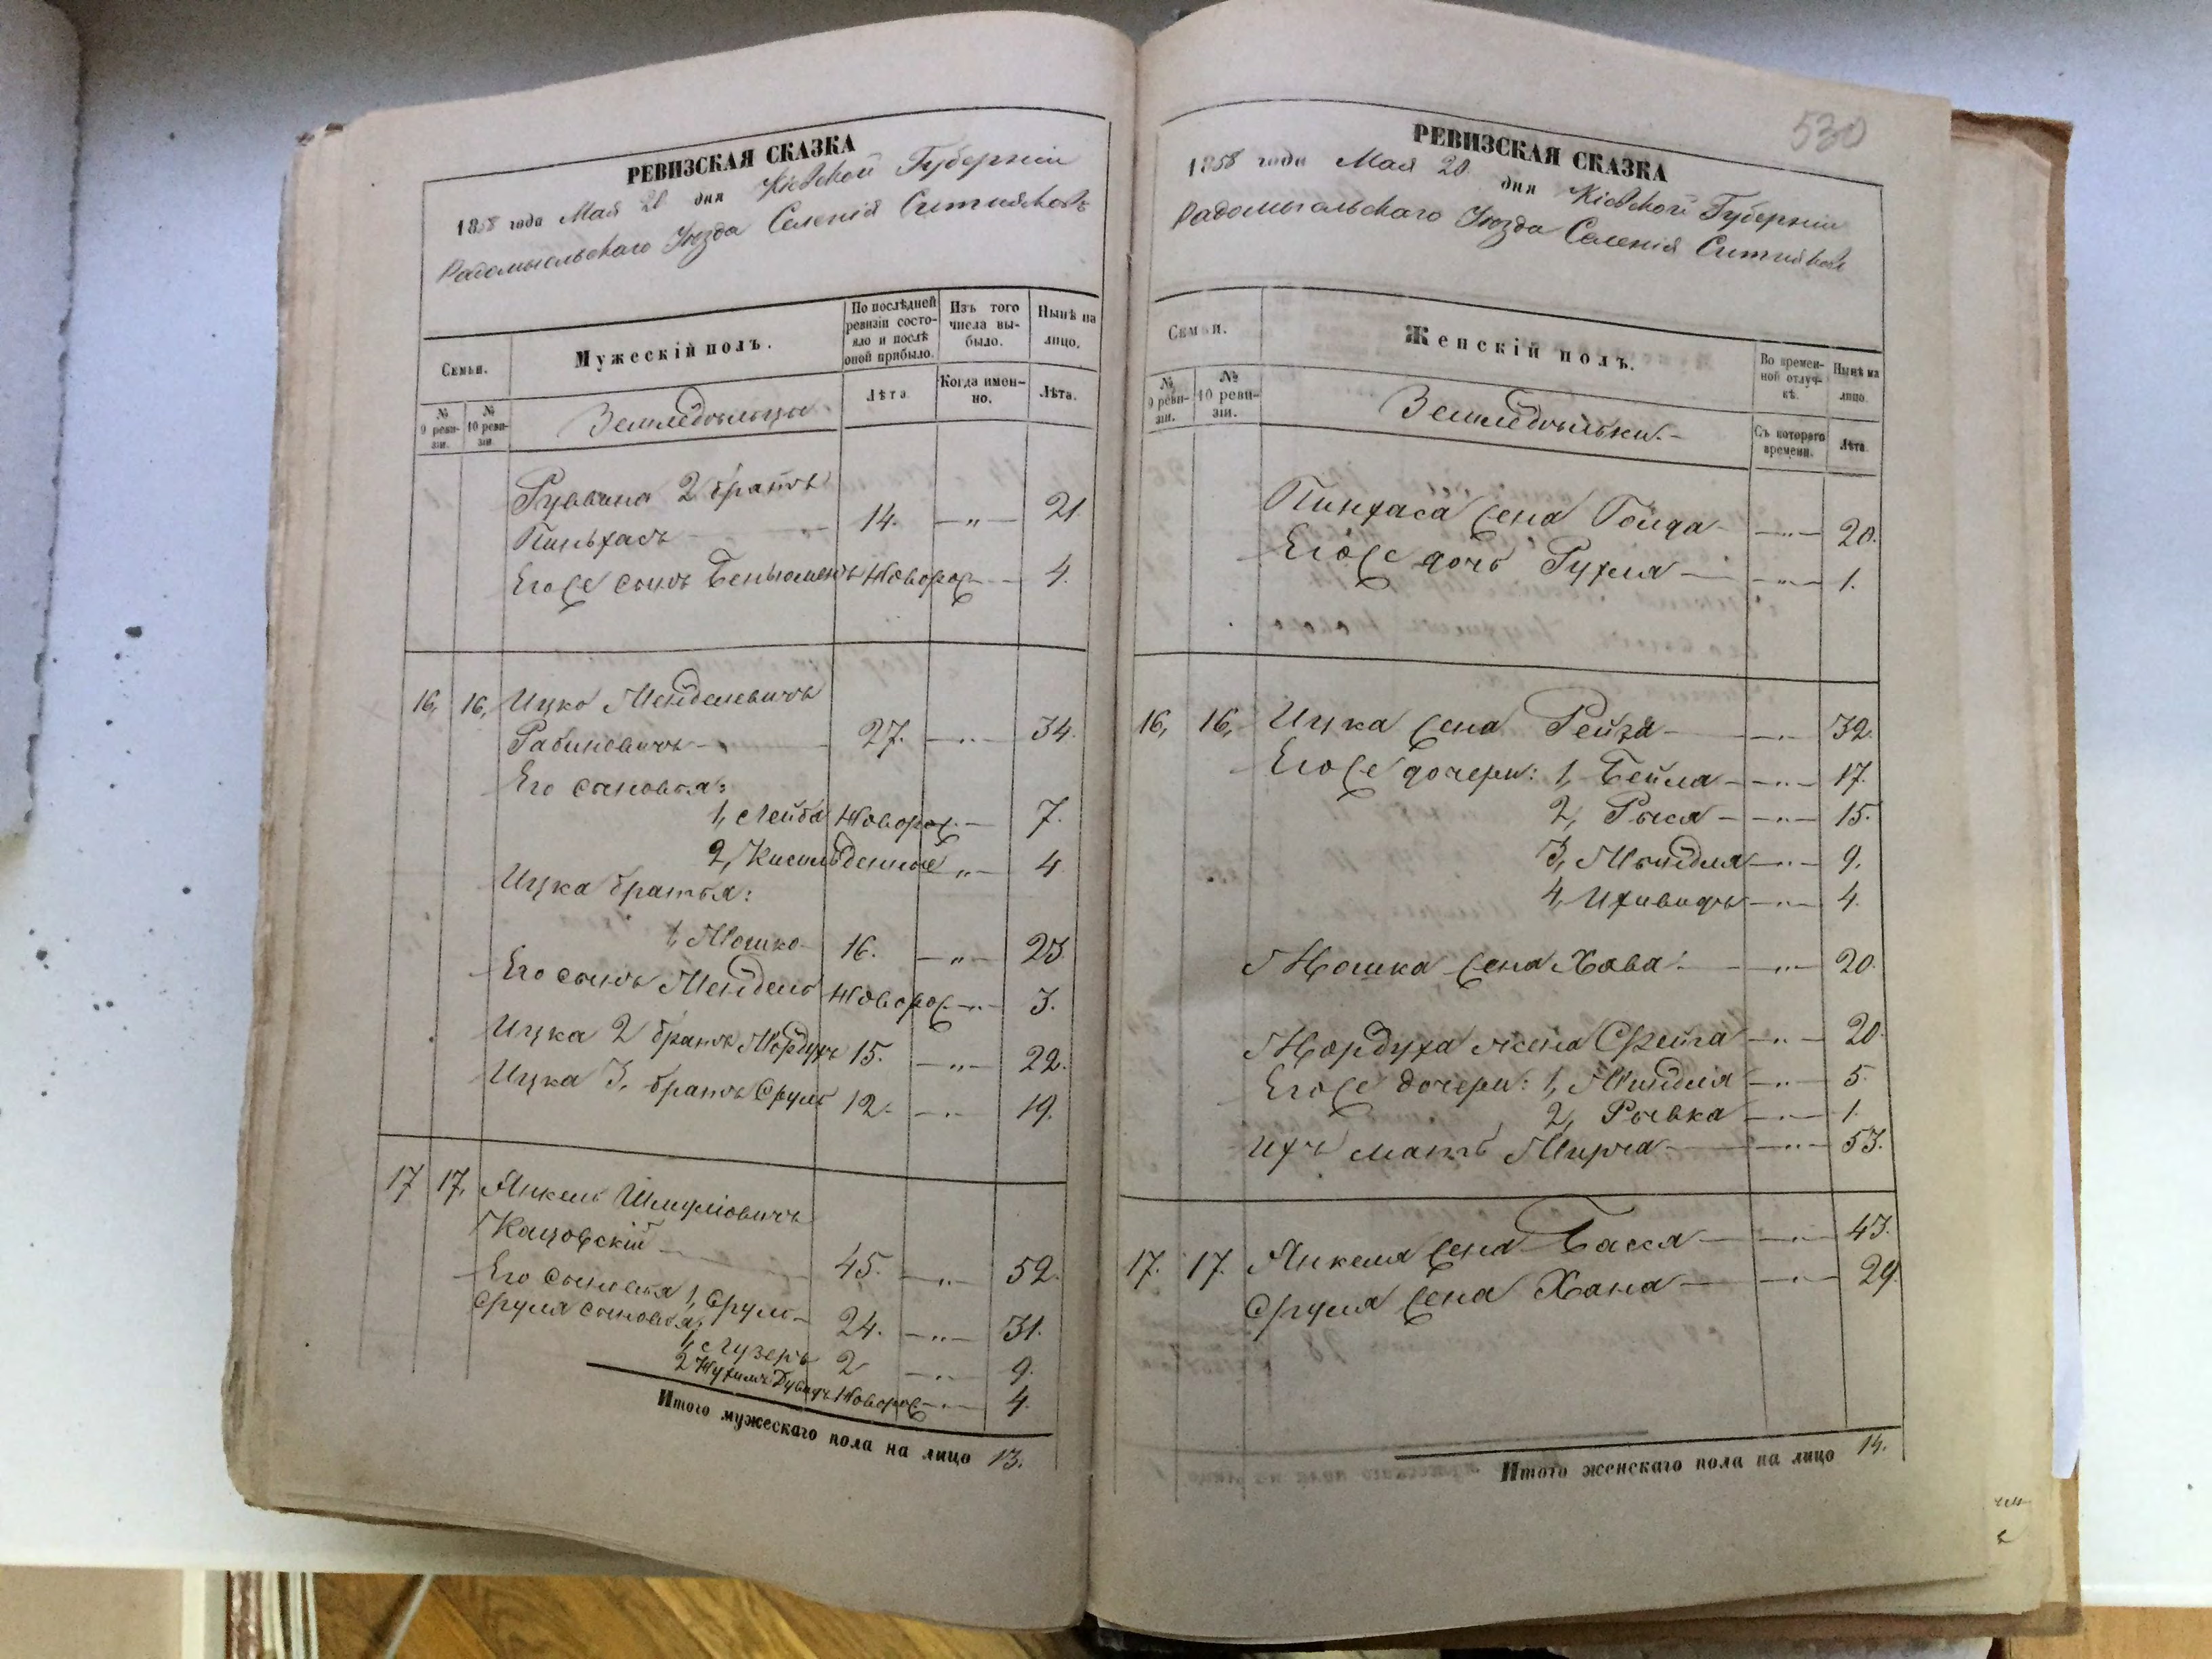 РЕВИЗСКАЯ СКАЗКА
1858 года Мая 20 дня Кіевской Губерніи
Радомысльскаго Уѣзда Селенія
Семьи.
Мужескій полъ.
По послѣдней ревизіи состояло и послѣ оной прибыло.
Изъ того числа выбыло.
Нынѣ на лицо.
№ 9 ревизіи.
№ 10 ревизіи
Земледѣльцы
Лѣта
Когда именно.
Лѣта.
Рувина 2 братъ
Пиньхасъ 14. — „ — 21
Его же сынъ Беньюменъ Новорож — 4.
16, 16, Ицко Менделевичъ
Рабиновичъ 27. — „ — 34.
Его сыновья:
1, Лейба Новорож. — 7.
2, Кисиль денные „ — 4
Ицка братья:
1, Мошко 16. — „ — 23.
Его сынъ Мендель Новорож — „ — 3.
Ицка 2 братъ Мордухъ 15. — „ — 22.
Ицка 3. братъ Сруль 12. — „ — 19.
17 17, Янкель Шмулiовичъ
Кацовскій 45. — „ — 52.
Его сыновья 1, Сруль 24. — „ — 31.
Сруля сыновья:
1, Лузеръ 2 — „ — 9.
2 Нухимъ Дувидъ Новорож — „ — 4.
Итого мужескаго пола на лицо 13.
530
РЕВИЗСКАЯ СКАЗКА
1858 года Мая 20 дня Кіевской Губерніи
Радомысльскаго Уѣзда Селенія
Семьи.
Женскій полъ.
Во временной отлучкѣ.
Нынѣ на лицо.
№ 9 ревизіи.
№ 10 ревизіи.
Земледѣльки.
Съ котораго времени.
Лѣта.
Пинхаса жена Гольда — „ — 20.
Его же дочь Рухля — „ — 1.
16, 16, Ицка жена Рейза — „ — 32.
Его же дочери: 1, Бейла — „ — 17.
2, Рыся — „ — 15.
3, Мындля — „ — 9.
4, — „ — 4.
Мошка жена Хава — „ — 20.
Мордуха жена Фейга — „ — 20.
Его же дочери: 1, Миндля — „ — 5.
2, Рывка — „ — 1.
Ихъ мать — „ — 53.
17. 17. Янкеля жена Бася — „ — 43.
Сруля жена Хана — „ — 29.
Итого женскаго пола на лицо 14.